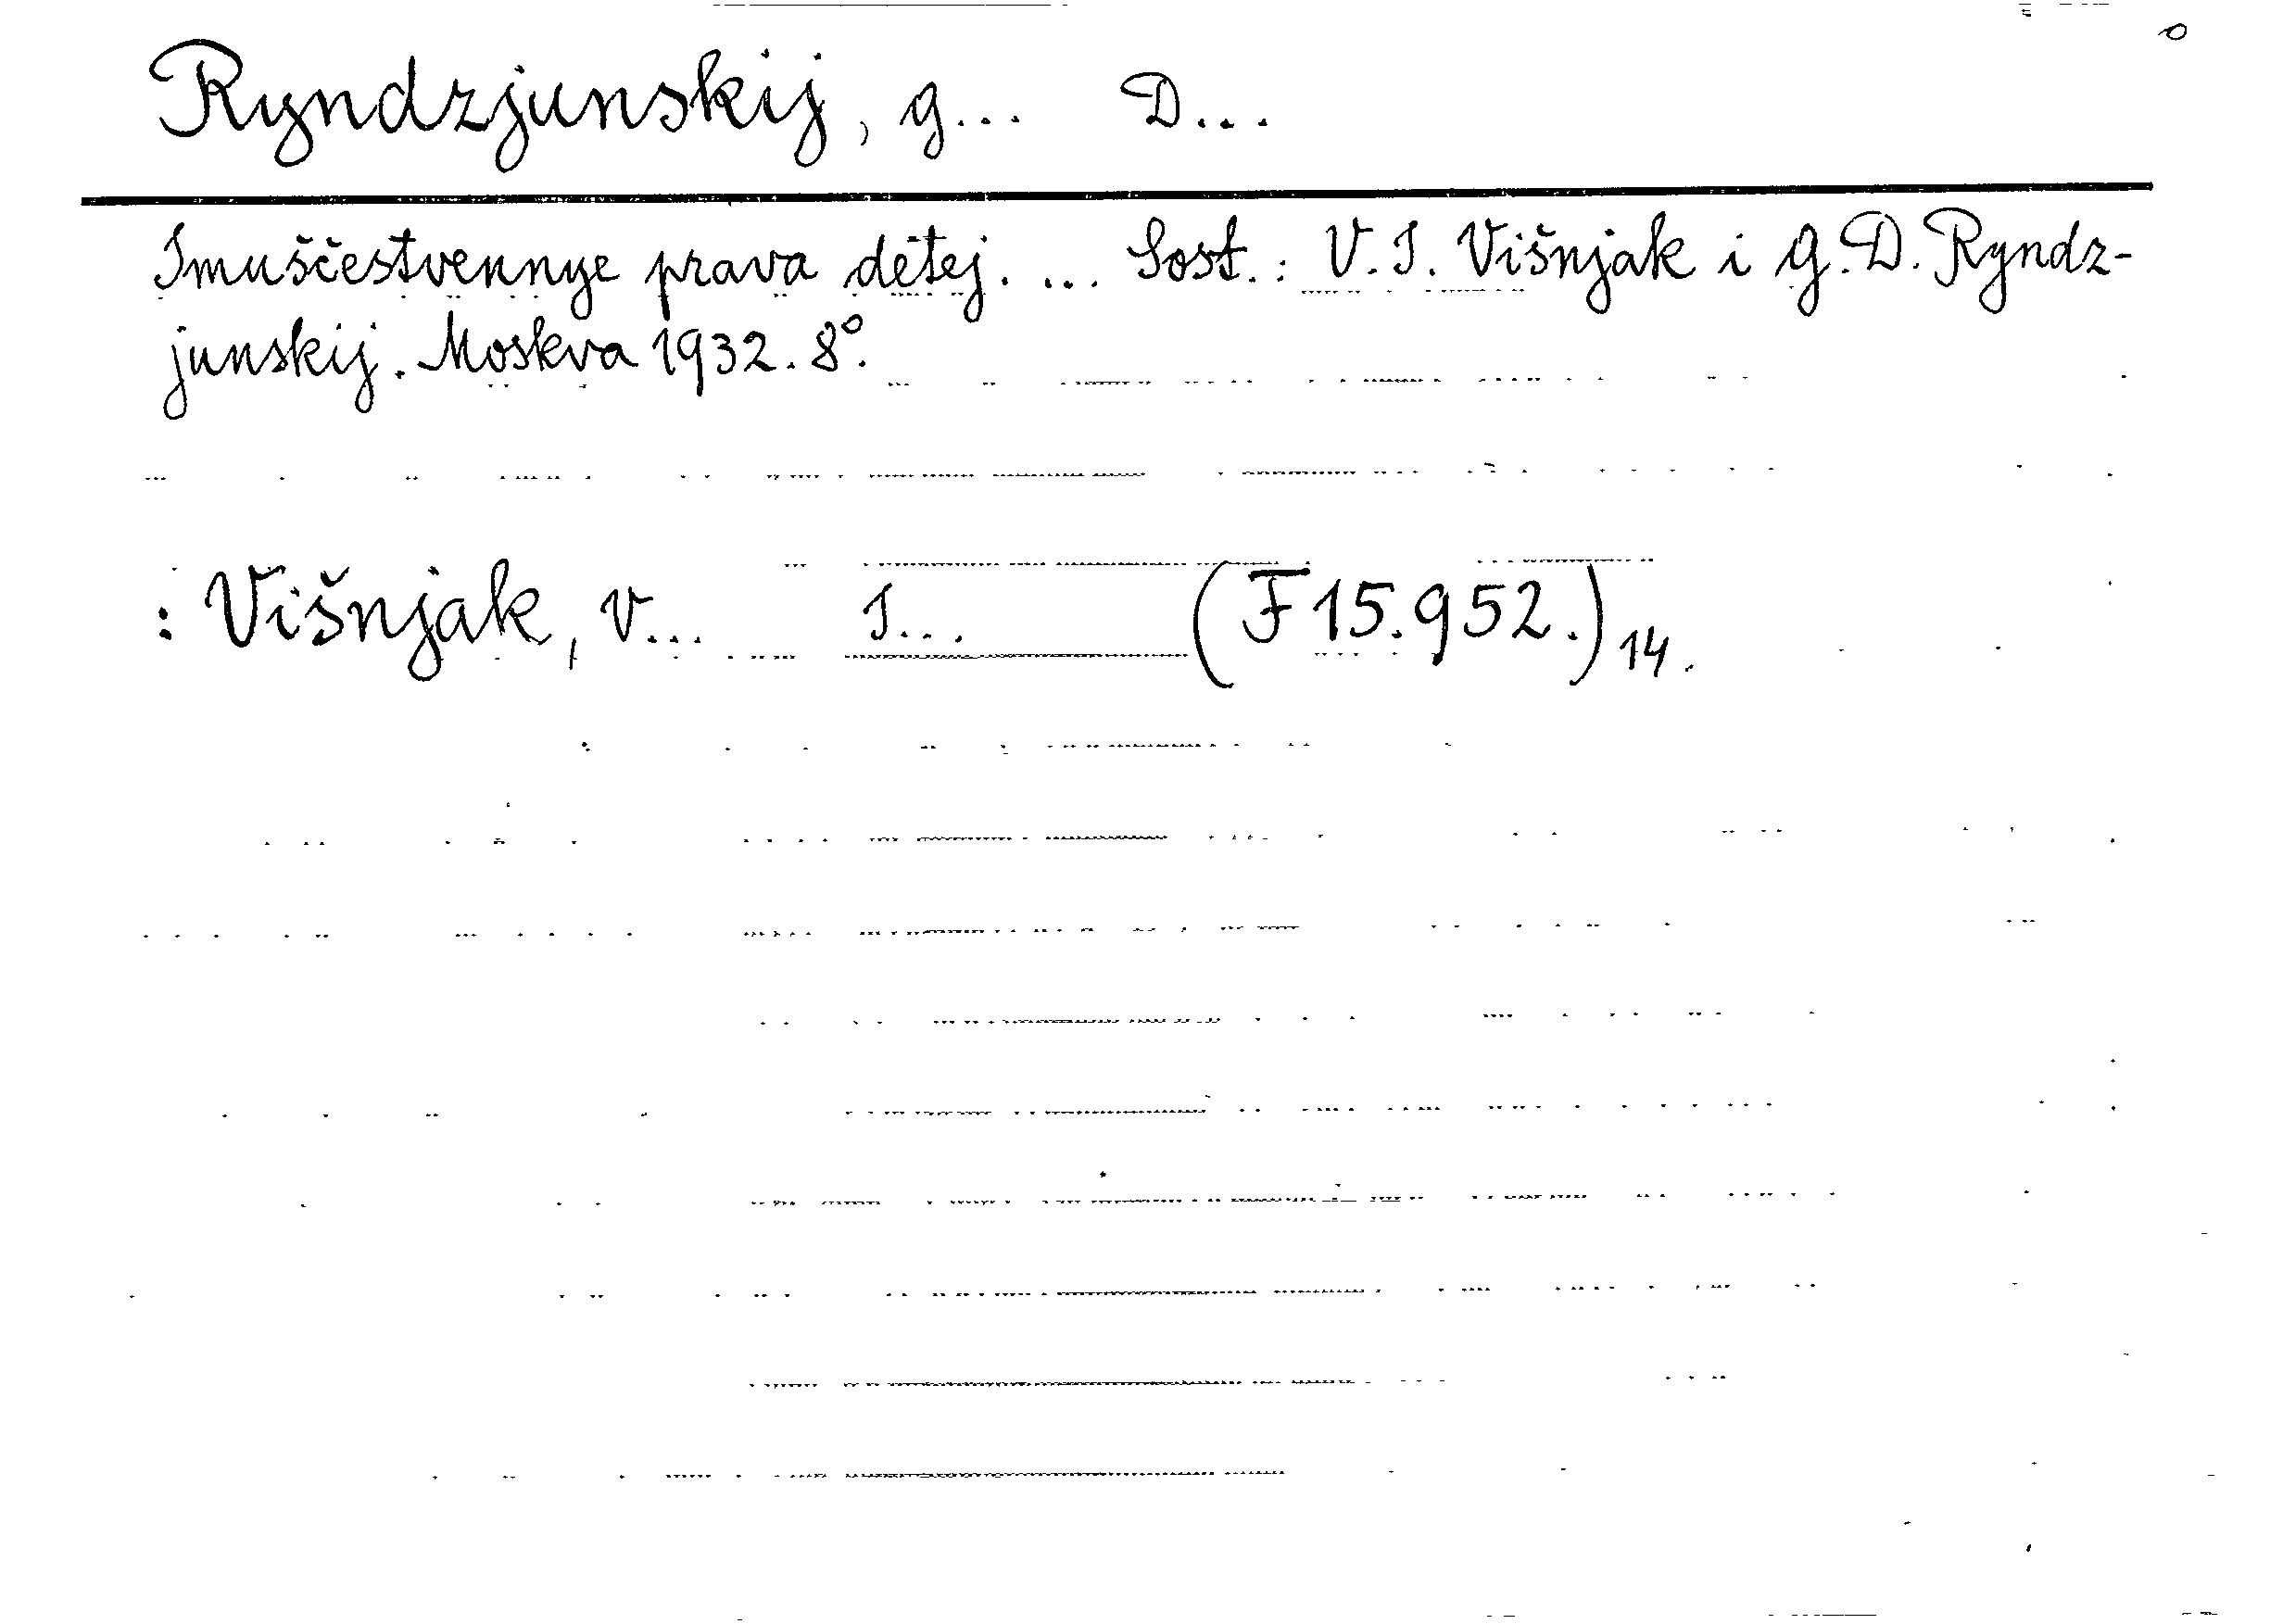 Ryndzjunskij, G... D...
Imuščestvennye prava detej. ... Sost.: V. I. Višnjak i G. D. Ryndz-
junskij. Moskva 1932. 8°.
: Višnjak, V... I... (F 15.952.) 14.